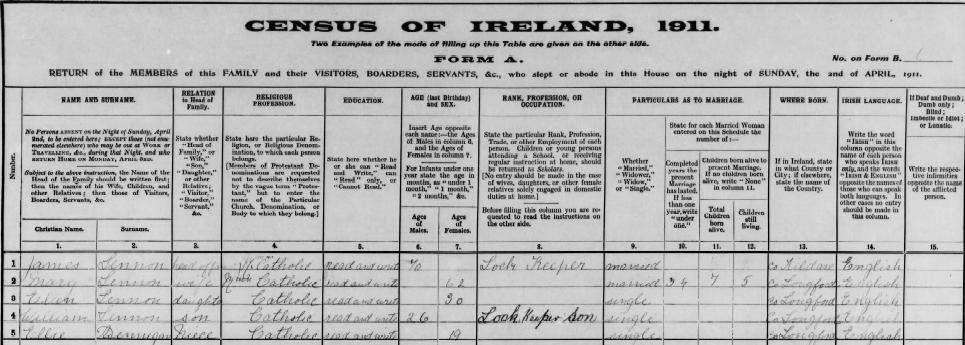 CENSUS OF IRELAND, 1911.
Two Examples of the mode of filling up this Table are given on the other side.
FORM A.
No. on Form B. 6
RETURN of the MEMBERS of this FAMILY and their VISITORS, BOARDERS, SERVANTS, &c., who slept or abode in this House on the night of SUNDAY, the 2nd of APRIL, 1911.
Number.
NAME AND SURNAME.
No Persons ABSENT on the Night of Sunday, April 2nd, to be entered here; EXCEPT those (not enumerated elsewhere) who may be out at WORK or TRAVELLING, &c., during that Night, and who RETURN HOME ON MONDAY, APRIL 3RD.
Subject to the above instruction, the Name of the Head of the Family should be written first; then the names of his Wife, Children, and other Relatives; then those of Visitors, Boarders, Servants, &c.
Christian Name.
Surname.
1.
2.
RELATION to Head of Family.
State whether "Head of Family," or "Wife," "Son," "Daughter," or other Relative; "Visitor," "Boarder," "Servant," &c.
3.
RELIGIOUS PROFESSION.
State here the particular Religion, or Religious Denomination, to which each person belongs.
[Members of Protestant Denominations are requested not to describe themselves by the vague term "Protestant," but to enter the name of the Particular Church, Denomination, or Body to which they belong.]
4.
EDUCATION.
State here whether he or she can "Read and Write," can "Read" only, or "Cannot Read."
5.
AGE (last Birthday) and SEX.
Insert Age opposite each name:—the Ages of Males in column 6, and the Ages of Females in column 7.
For Infants under one year state the age in months, as "under 1 month," "1 month," "2 months," &c.
Ages of Males.
Ages of Females.
6.
7.
RANK, PROFESSION, OR OCCUPATION.
State the particular Rank, Profession, Trade, or other Employment of each person. Children or young persons attending a School, or receiving regular instruction at home, should be returned as Scholars.
[No entry should be made in the case of wives, daughters, or other female relatives solely engaged in domestic duties at home.]
Before filling this column you are requested to read the instructions on the other side.
8.
PARTICULARS AS TO MARRIAGE.
Whether "Married," "Widower," "Widow," or "Single."
9.
State for each Married Woman entered on this Schedule the number of:—
Completed years the present Marriage has lasted. If less than one year, write "under one."
10.
Children born alive to present Marriage. If no children born alive, write "None" in column 11.
Total Children born alive.
Children still living.
11.
12.
WHERE BORN.
If in Ireland, state in what County or City; if elsewhere, state the name of the Country.
13.
IRISH LANGUAGE.
Write the word "IRISH" in this column opposite the name of each person who speaks IRISH only, and the words "IRISH & ENGLISH" opposite the names of those who can speak both languages. In other cases no entry should be made in this column.
14.
If Deaf and Dumb; Dumb only; Blind; Imbecile or Idiot; or Lunatic.
Write the respective infirmities opposite the name of the afflicted person.
15.
1 James Lennon head of Catholic read and write 70 Lock Keeper married Co Kildare English
2 Mary Lennon wife Catholic read and write 62 married 34 7 5 Co Longford English
3 Lennon daughter Catholic read and write 30 single Co Longford English
4 William Lennon son Catholic read and write 26 Lock Keeper son single Co Longford English
5 Ellie Dennigan Niece Catholic read and write 19 single Co Longford English